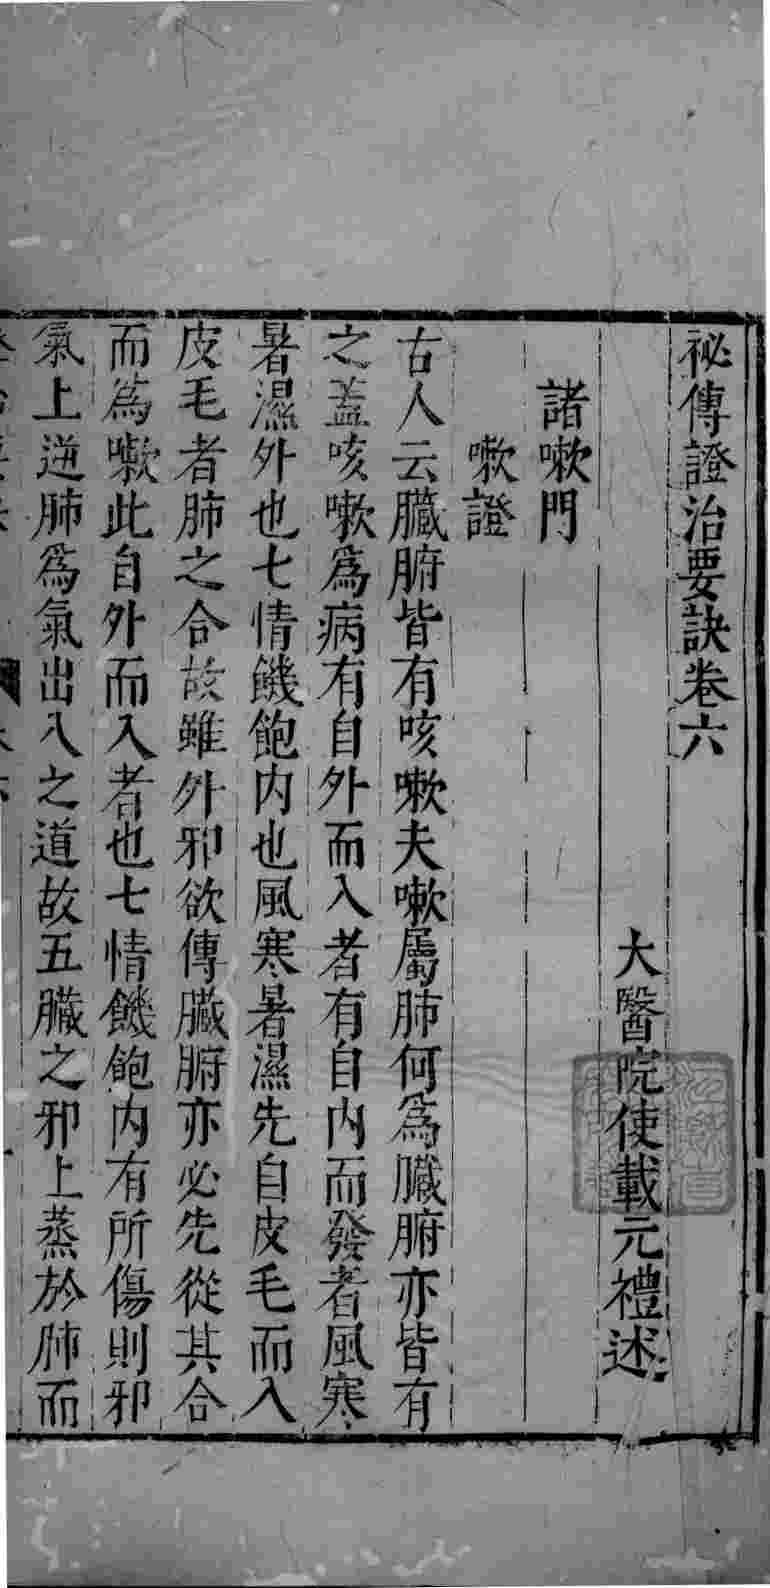 祕傳證治要訣卷六
大醫院使載元禮述
諸嗽門
嗽證
古人云臟腑皆有咳嗽夫嗽屬肺何爲臟腑亦皆有
之蓋咳嗽爲病有自外而入者有自内而發者風寒
暑濕外也七情饑飽内也風寒暑濕先自皮毛而入
皮毛者肺之合故雖外邪欲傳臟腑亦必先從其合
而爲嗽此自外而入者也七情饑飽内有所傷則邪
氣上逆肺爲氣出入之道故五臟之邪上蒸於肺而